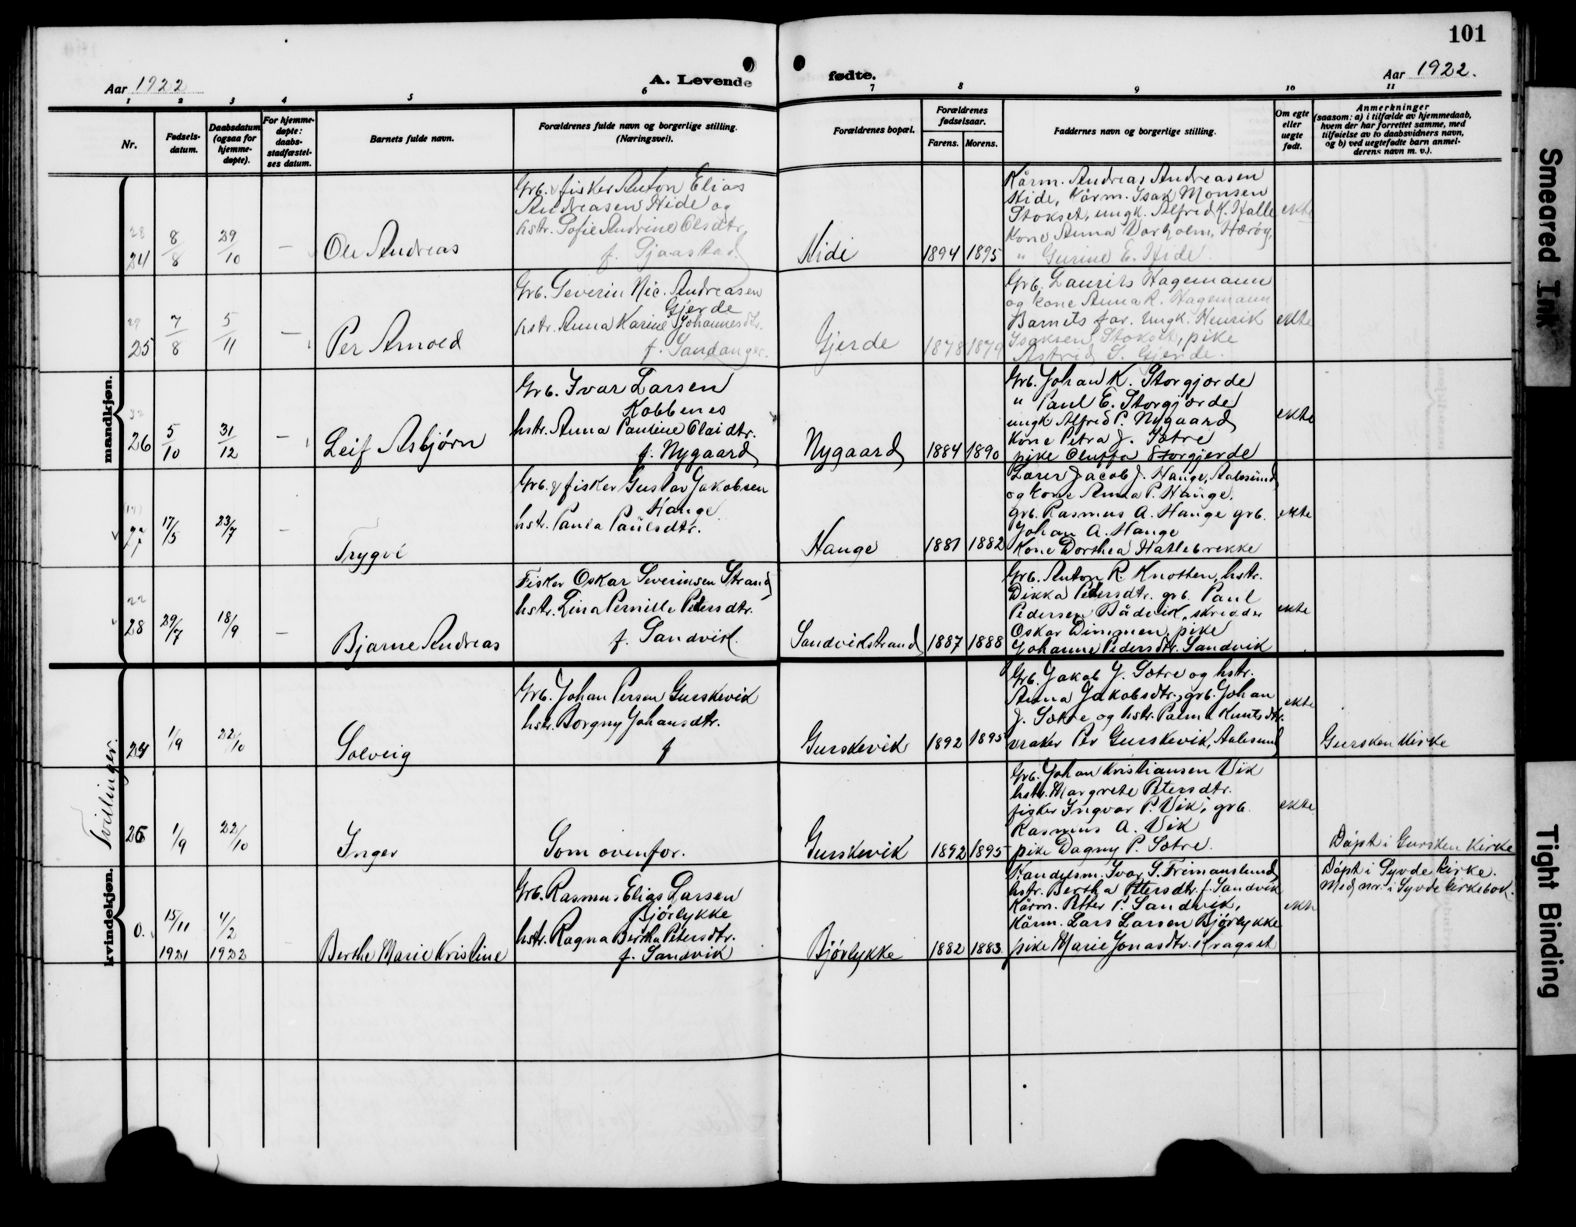 101
Aar 1922
A. Levende fødte.
Aar 1922.
1 2 3 4 5 6 7 8 9 10 11
Nr.
Fødsels-
datum.
Daabsdatum
(ogsaa for
hjemme-
døpte).
For hjemme-
døpte:
daabs-
stadfæstel-
ses datum.
Barnets fulde navn.
Forældrenes fulde navn og borgerlige stilling.
(Næringsvei).
Forældrenes bopæl.
Forældrenes
fødselsaar.
Farens. Morens.
Faddernes navn og borgerlige stilling.
Om egte
eller
uegte
født.
Anmerkninger
(saasom: a) i tilfælde av hjemmedaab,
hvem der har forrettet samme, med
tilføielse av to daabsvidners navn,
og b) ved uegtefødte barn anmel-
derens navn m. v.).
mandkjøn.
24
8/8
29/10
–
Ole Andreas
Grb. fisker Anton Elias
Andreasen Hide og
hstr. Sofie Andrine Olsdtr.
f. Sjaastad
Hide
1894
1895
Kårm. Andreas Andreasen
Hide, Kårm. Isak Monsen
Stokset, ungk. Alfred K. Halle
Kone Anna Vorholm, Herøy,
" Gurine E. Hide.
ekte
25
7/8
5/11
–
Per Arnold
Grb. Severin Nic. Andreasen
Gjerde
hstr. Anna Karine Johannesdtr.
f. Sandanger.
Gjerde
1878
1879
Grb. Laurits Hagemann
og kone Anna R. Hagemann
Barnets far. Ungk. Henrik
Isaksen Stokset, pike
Astrid S. Gjerde.
ekte
26
5/10
31/12
–
Leif Asbjørn
Grb. Ivar Larsen
Kobbenes
hstr. Anna Pauline Olaidtr.
f. Nygaard
Nygaard
1884
1890
Grb. Johan K. Storgjerde
" Paul E. Storgjerde
ungk Alfred P. Nygaard
Kone Petra J. Sætre
pike Oluffa Storgjerde
ekte
27
17/5
23/7
–
Trygve
Grb. & fisker Gustav Jakobsen
Hauge
hstr. Pania Paulsdtr.
Hauge
1881
1882
Lærer Jacob J. Hauge, Aalesund
og kone Anna P. Hauge,
grb. Rasmus A. Hauge grb.
Johan A. Hauge
Kone Dorthea Hatlebrekke
ekte
28
29/7
18/9
–
Bjarne Andreas
Fisker Oskar Severinsen Strand
hstr. Lina Pernille Petersdtr.
f. Sandvik.
Sandvikstrand
1887
1888
Grb. Anton R. Knotten, hstr.
Dikka Petersdtr. grb. Paul
Pedersen Bådsvik, skredder
Oskar Dimmen, pike
Johanne Pedersdtr. Sandvik
ekte
Tvillinger.
kvindekjøn.
24
1/9
22/10
Solveig
Grb. Johan Persen Gurskevik
hstr. Borgny Johansdtr.
f
Gurskevik
1892
1895
Grb. Jakob J. Sætre og hstr.
Anna Jakobsdtr., grb. Johan
J. Sætre og hstr. Palma Knutsdtr.
vraker Per Gurskevik, Aalesund
ekte
Gursken Kirke
25
1/9
22/10
Inger
Som ovenfor.
Gurskevik
1892
1895
Grb. Johan Kristiansen Vik
hstr. Margrete Petersdtr.
fisker Ingvar P. Vik, grb.
Rasmus A. Vik
pike Dagny P. Sætre.
ekte
Døpt i Gursken Kirke
0.
15/11
1921
4/2
1922
Berthe Marie Kristine
Grb. Rasmus Elias Larsen
Bjørlykke
hstr. Ragna Bertha Petersdtr.
f. Sandvik
Bjørlykke
1882
1883
Handelsm. Ivar S. Freimanslund
hstr. Bertha Petersdtr. f. Sandvik
Kårm. Petter P. Sandvik,
Kårm. Lars Larsen Bjørlykke
pike Marie Jonasdtr. Kragset
ekte
Døpt i Syvde kirke.
Med nr. i Syvde kirkebok.
Smeared Ink
Tight Binding